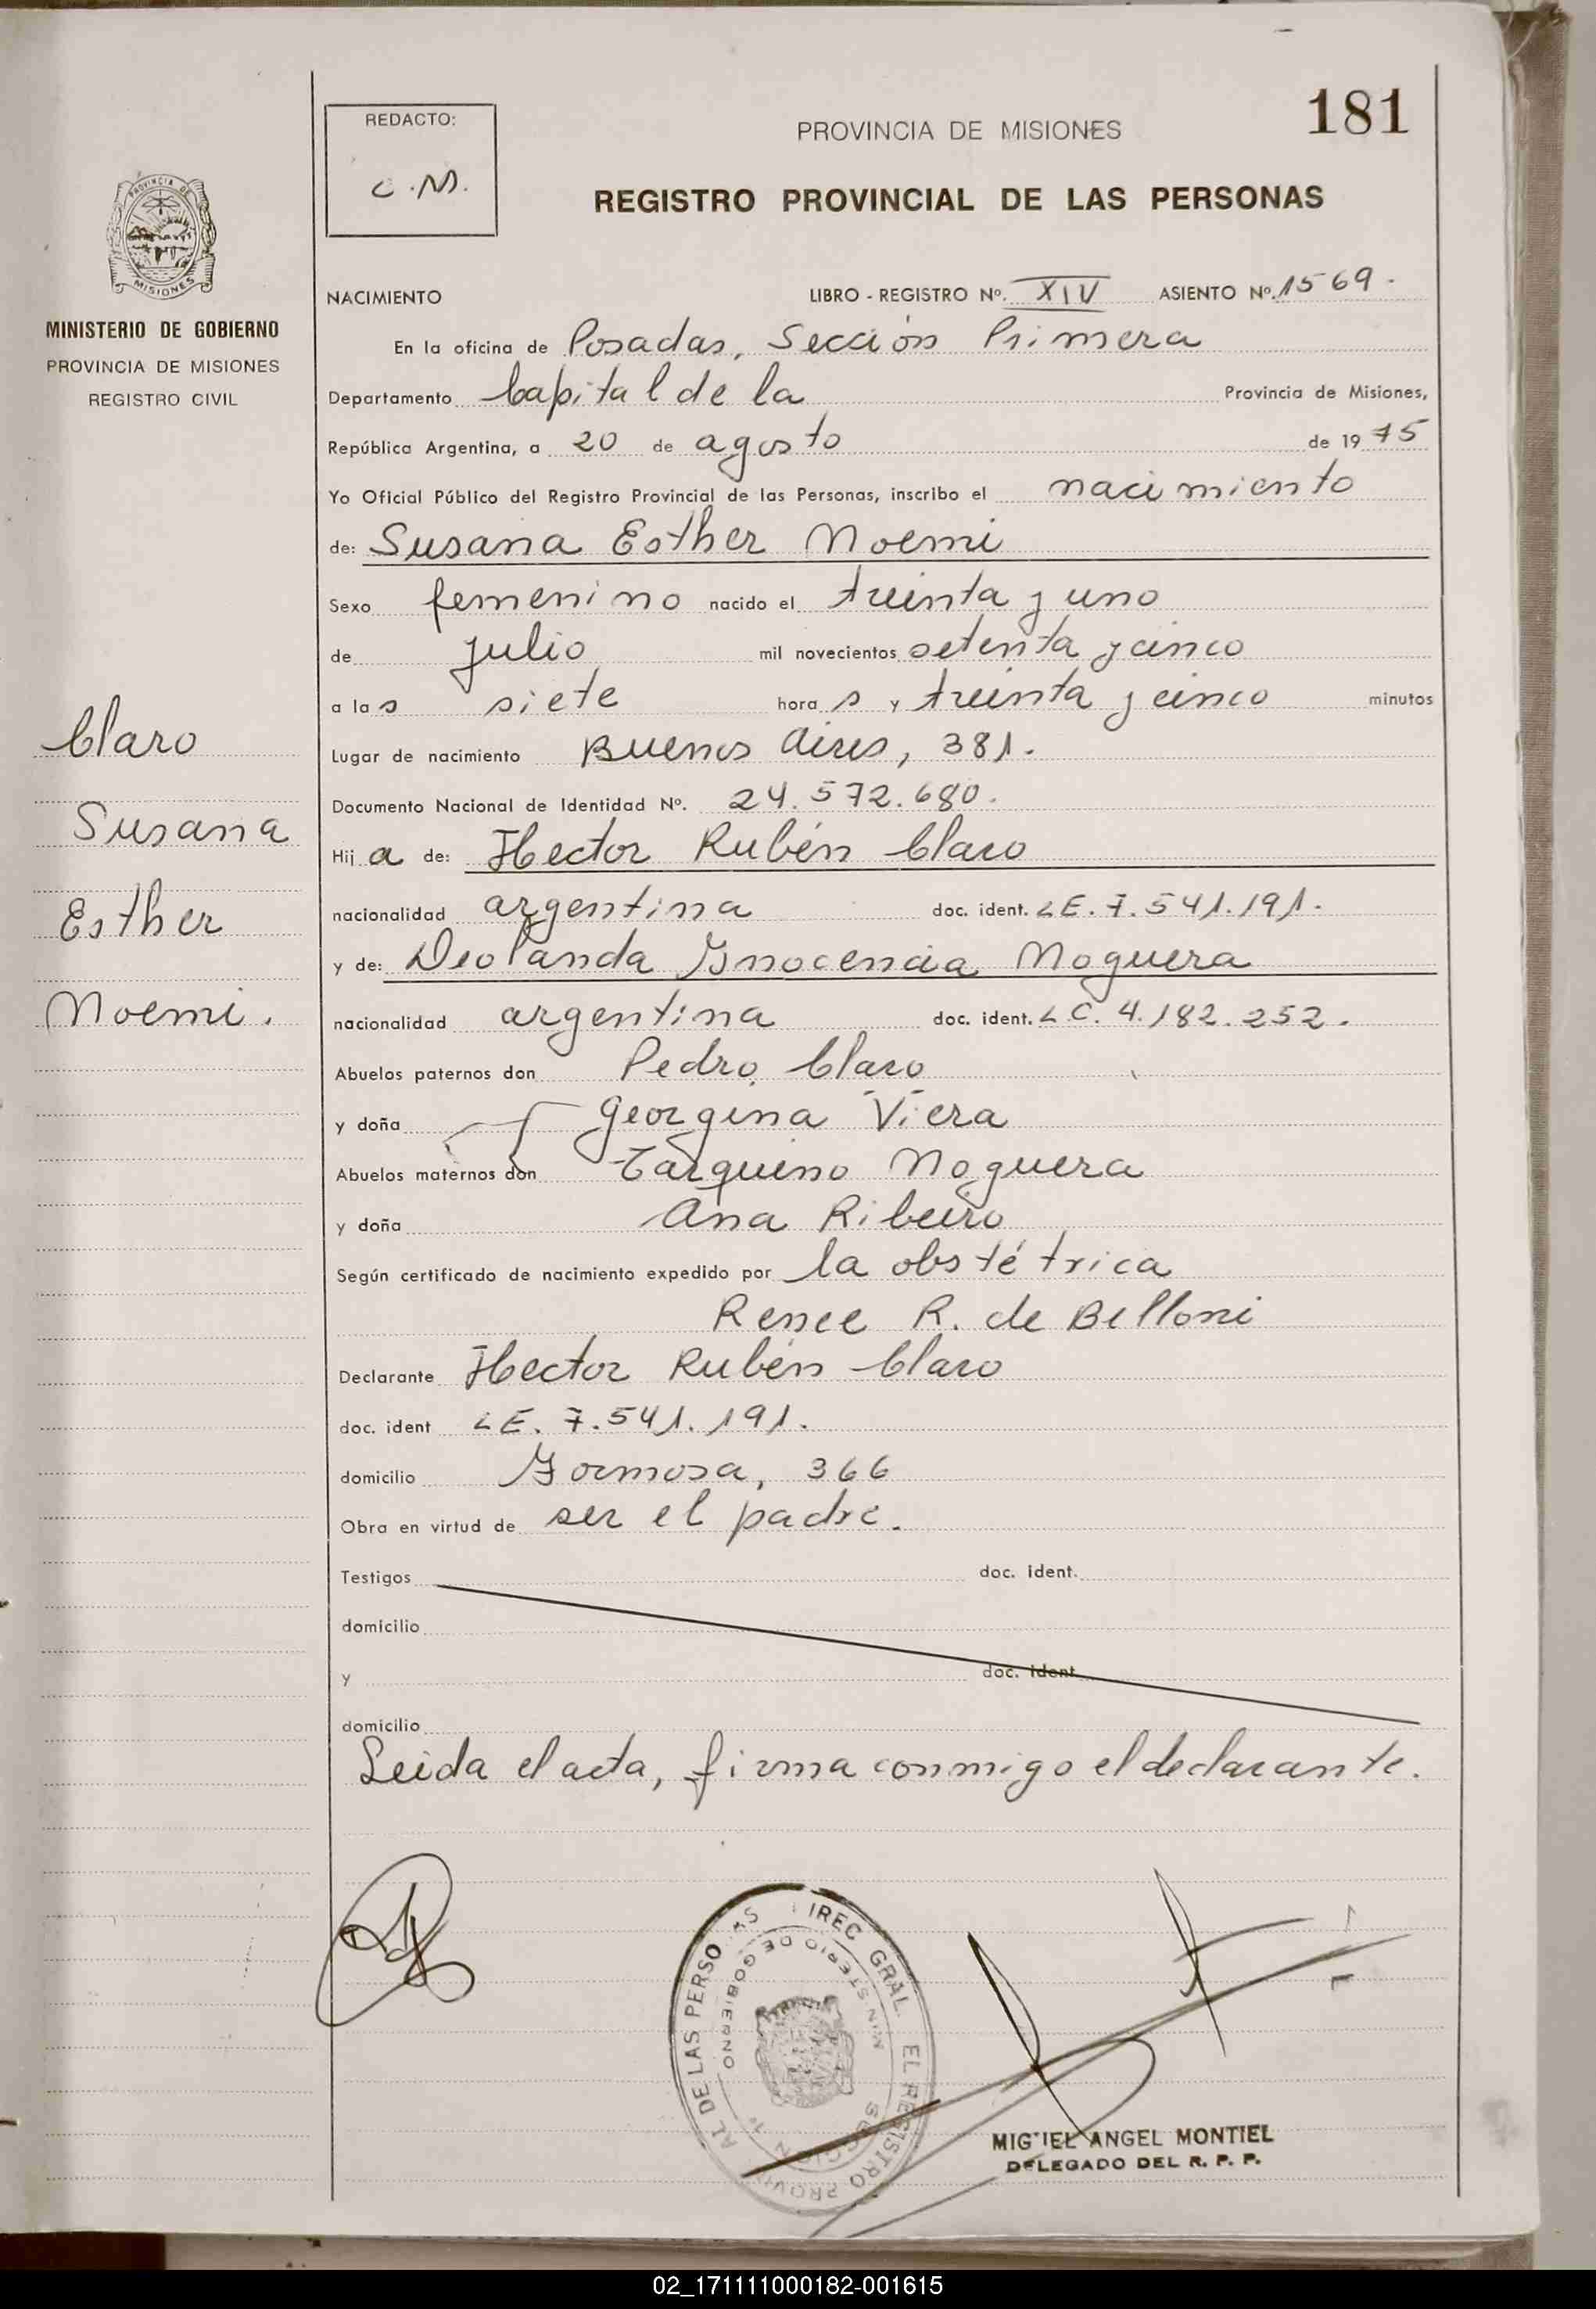 181
REDACTO:
C.M.
PROVINCIA DE MISIONES
REGISTRO PROVINCIAL DE LAS PERSONAS
MINISTERIO DE GOBIERNO
PROVINCIA DE MISIONES
REGISTRO CIVIL
NACIMIENTO LIBRO - REGISTRO Nº. XIV ASIENTO Nº. 1569.
En la oficina de Posadas, Sección Primera
Departamento Capital de la Provincia de Misiones,
República Argentina, a 20 de agosto de 1975
Yo Oficial Público del Registro Provincial de las Personas, inscribo el nacimiento
de: Susana Esther Noemi
Sexo femenino nacido el treinta y uno
de julio mil novecientos setenta y cinco
a las siete horas y treinta y cinco minutos
Lugar de nacimiento Buenos Aires, 381.
Documento Nacional de Identidad Nº. 24.572.680.
Hija de: Hector Rubén Claro
nacionalidad argentina doc. ident. LE. 7.541.191.
y de: Deolanda Ynocencia Noguera
nacionalidad argentina doc. ident. LC. 4.182.252.
Abuelos paternos don Pedro Claro
y doña Georgina Viera
Abuelos maternos don Tarquino Noguera
y doña Ana Ribeiro
Según certificado de nacimiento expedido por la obstétrica
Renee R. de Belloni
Declarante Hector Rubén Claro
doc. ident LE. 7.541.191.
domicilio Formosa, 366
Obra en virtud de ser el padre.
Testigos doc. ident.
domicilio
y doc. ident
domicilio
Leida el acta, firma conmigo el declarante.
Claro
Susana
Esther
Noemi.
PROVINCIA DE
MISIONES
MINISTERIO DE GOBIERNO
MIGUEL ANGEL MONTIEL
DELEGADO DEL R. P. P.
02_171111000182-001615